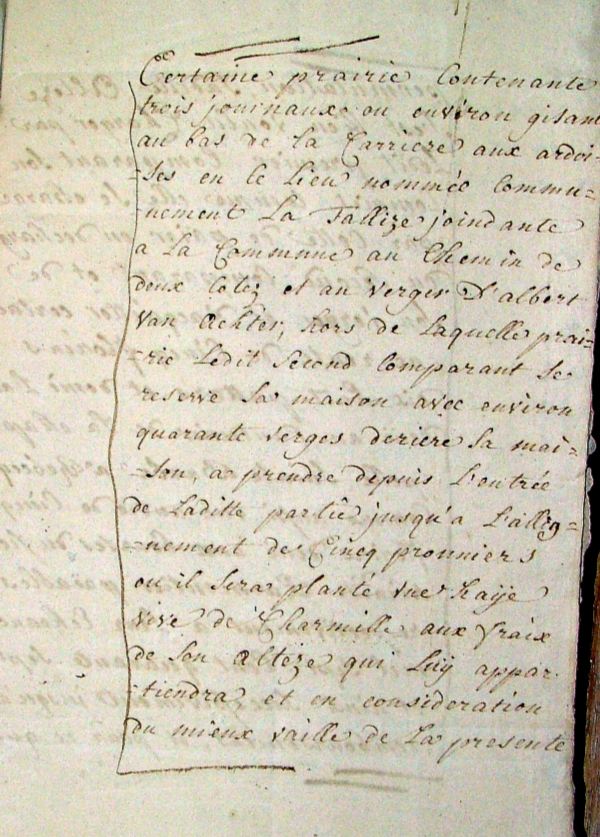 Certaine prairie Contenante
trois journaux ou environ gisant
au bas de la Carriere aux ardoi-
-ses en le Lieu nommée Commu-
-nement La Tallize joindante
a La Commune au Chemin de
deux Cotez et au verger D'albert
Van Achter, hors de Laquelle prai-
-rie Ledit Second Comparant Se
reserve Sa maison avec environ
quarante verges deriere Sa mai-
-Son, a prendre depuis L'entrée
de Laditte partie jusqu'a L'allig-
-nement de Cincq pronniers
ou il Sera planté une Haije
vive de Charmille aux fraix
de Son Alteze qui Luy appar-
-tiendra, et en consideration
du mieux vaille de La presente